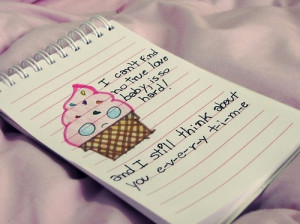 I can't find
no true love
baby, is so
hard!
and I still think about
you e-v-e-r-y t-i-m-e